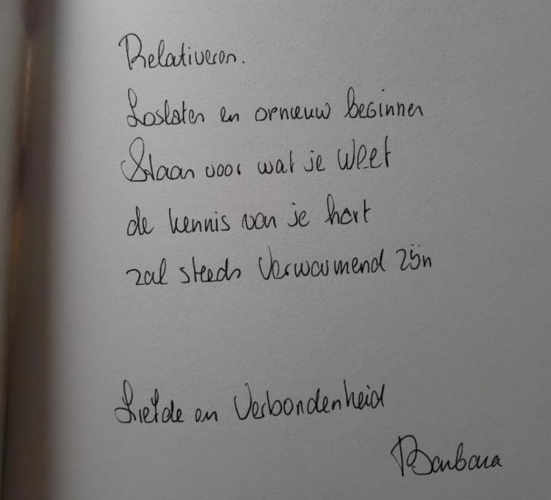 Relativeren.
Loslaten en opnieuw beginnen
Staan voor wat je weet
de kennis van je hart
zal steeds verwarmend zijn
Liefde en Verbondenheid
Barbara